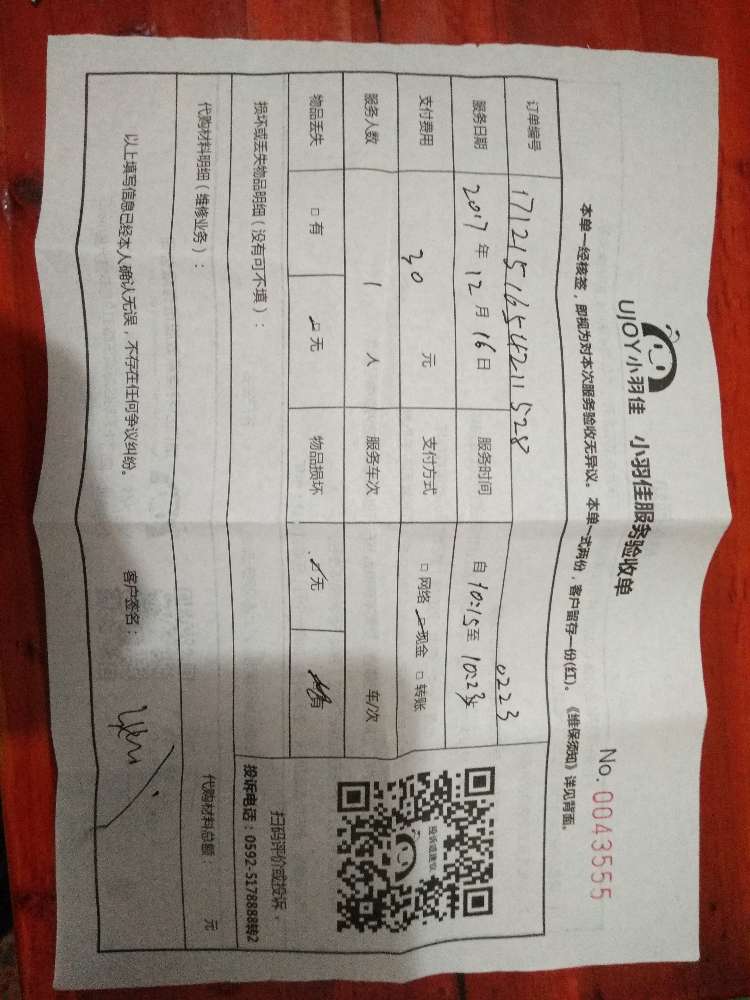 UJOY小羽佳 小羽佳服务验收单
No. 0043555
本单一经核签，即视为对本次服务验收无异议。本单一式两份，客户留存一份(红)。《维保须知》详见背面。
订单编号 1712151654211528 0223
服务日期 2017年12月16日 服务时间 自10:15至10:23
支付费用 30 元 支付方式 □网络 □现金 □转账
服务人数 1 人 服务车次 车/次
物品丢失 □有 □无 物品损坏 □无 有
损坏或丢失物品明细（没有可不填）：
代购材料明细（维修业务）： 代购材料总额： 元
以上填写信息已经本人确认无误，不存在任何争议纠纷。 客户签名：
投诉或建议
扫码评价或投诉
投诉电话：0592-5178888转2